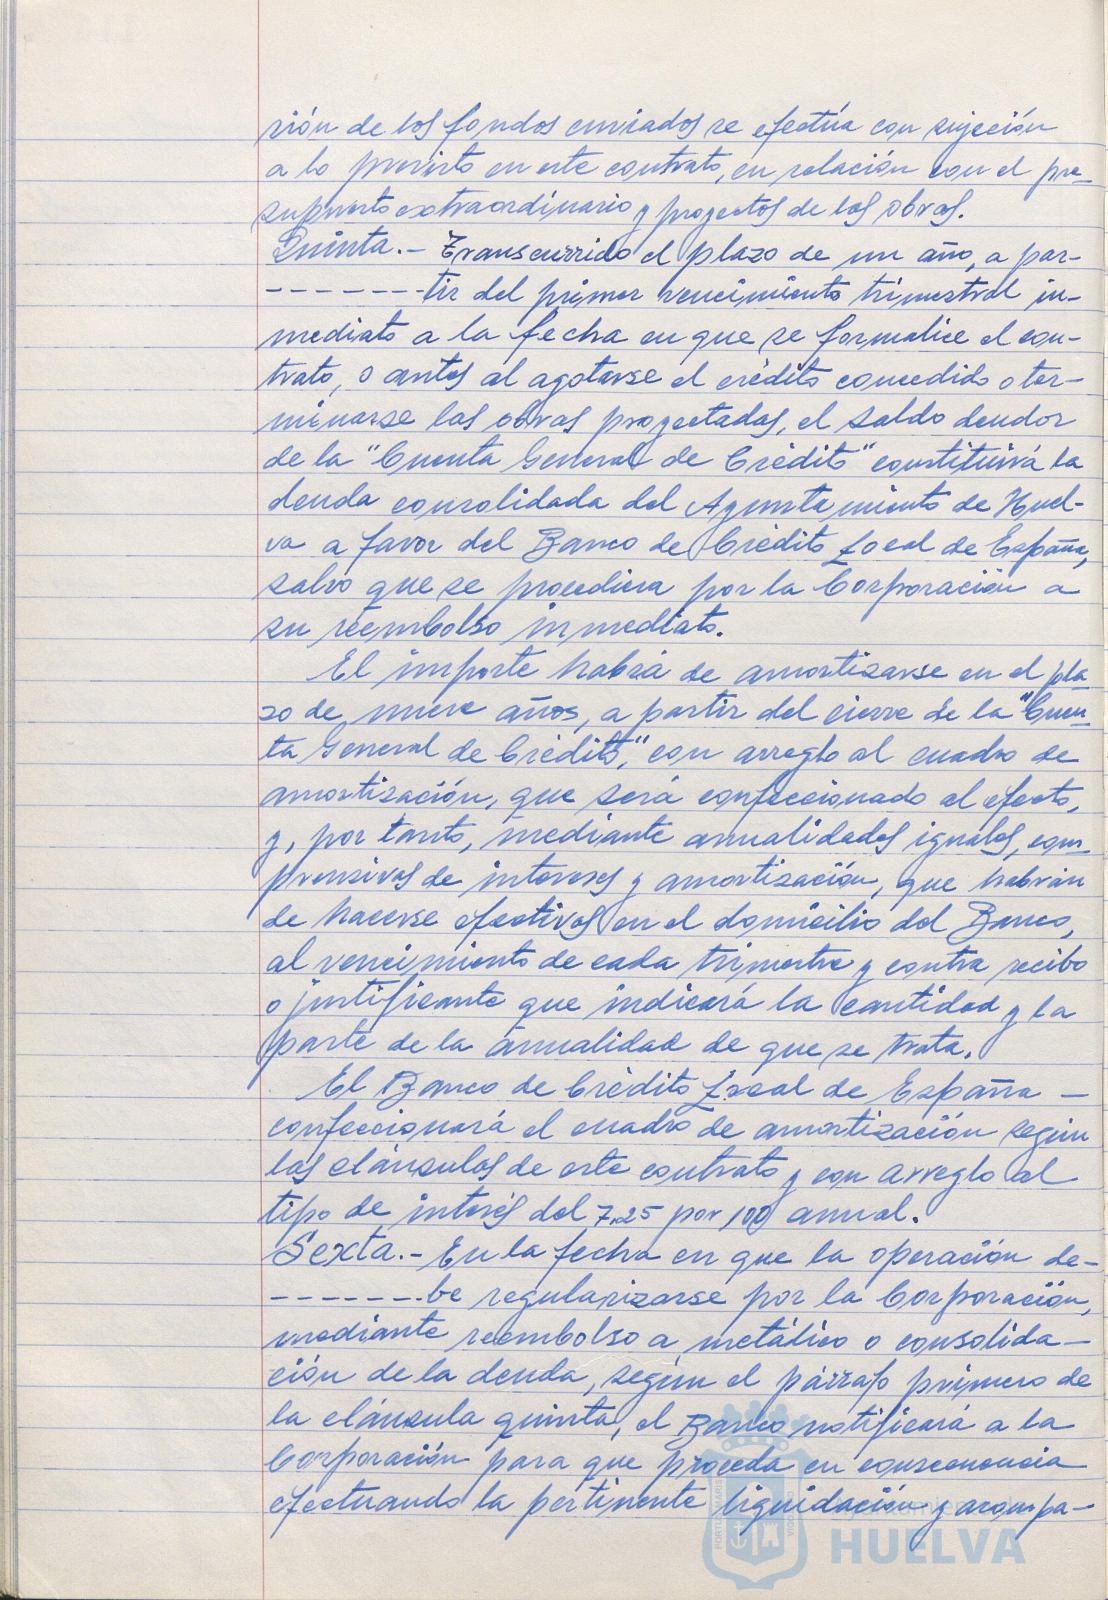 sión de los fondos enviados se efectúa con sujeción
a lo previsto en este contrato, en relación con el pre-
supuesto extraordinario y proyectos de las obras.
Quinta.- Transcurrido el plazo de un año, a par-
- - - - - - - tir del primer vencimiento trimestral in-
mediato a la fecha en que se formalice el con-
trato, o antes al agotarse el crédito concedido o ter-
minarse las obras proyectadas, el saldo deudor
de la "Cuenta General de Crédito" constituirá la
deuda consolidada del Ayuntamiento de Huel-
va a favor del Banco de Crédito Local de España,
salvo que se procediera por la Corporación a
su reembolso inmediato.
El importe habrá de amortizarse en el pla-
zo de nueve años, a partir del cierre de la "Cuen-
ta General de Crédito", con arreglo al cuadro de
amortización, que será confeccionado al efecto,
y, por tanto, mediante anualidades iguales, com-
prensivas de intereses y amortización, que habrán
de hacerse efectivas en el domicilio del Banco,
al vencimiento de cada trimestre y contra recibo
o justificante que indicará la cantidad y la
parte de la anualidad de que se trata.
El Banco de Crédito Local de España -
confeccionará el cuadro de amortización según
las cláusulas de este contrato y con arreglo al
tipo de interés del 7,25 por 100 anual.
Sexta.- En la fecha en que la operación de-
- - - - - - - be regularizarse por la Corporación,
mediante reembolso a metálico o consolida-
ción de la deuda, según el párrafo primero de
la cláusula quinta, el Banco notificará a la
Corporación para que proceda en consecuencia
efectuando la pertinente liquidación y acompa-
Ayuntamiento de
HUELVA